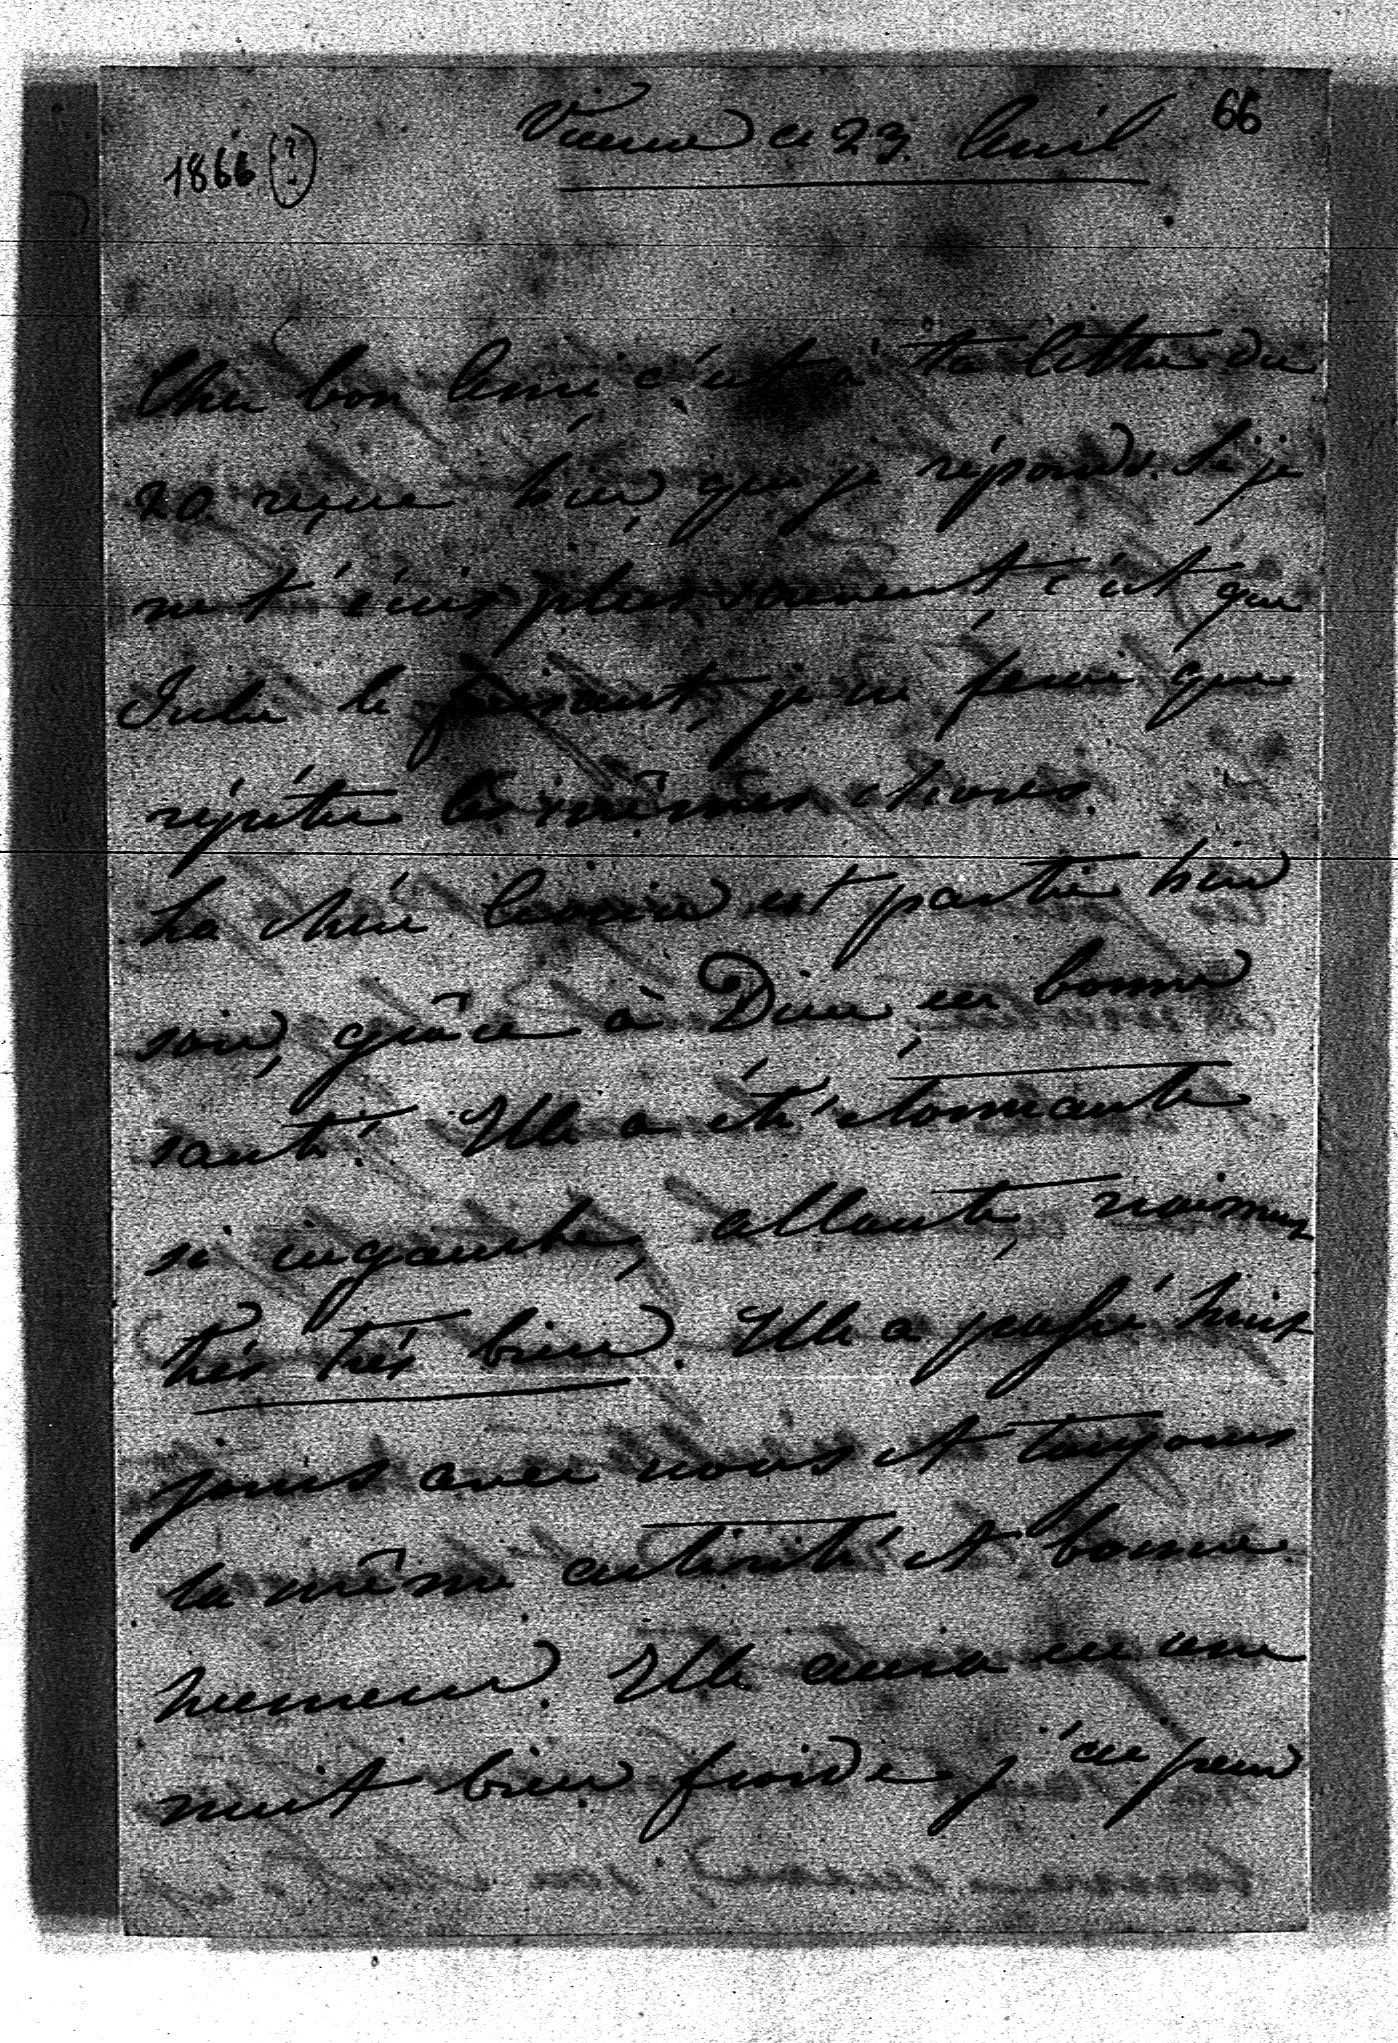 66
Vienne ce 23. Avril
1866 (?)
Cher bon Ami c'est à ta lettre du
20 reçue hier, que je réponds. Si je
ne t'écris plus souvent c'est que
Julie le faisant, je ne ferai que
répéter les mêmes choses.
La chère est partie hier
soir, grâce à Dieu, en bonne
santé. Elle a été étonnante
si ingambe, allante,
très très bien. Elle a passé huit
jours avec nous et toujours
la même activité et bonne
humeur. Elle aura eu une
nuit bien froide j'ai peur